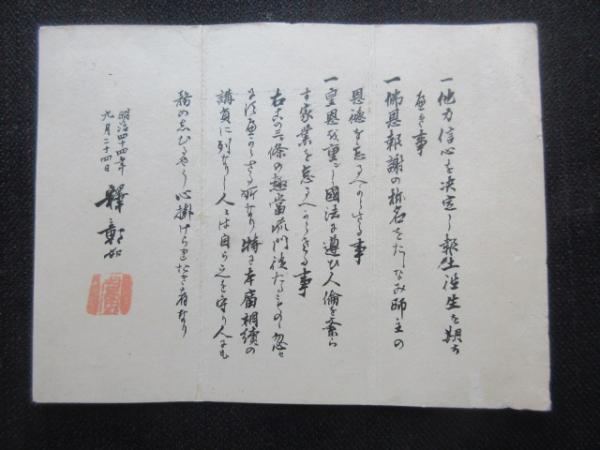 一他力信心を決定し報土往生を期す
べき事
一佛恩報謝の称名をたしなみ師主の
恩徳を忘るへからさる事
一皇恩を重ンし國法を遵ひ人倫を紊ら
す家業を怠るへからさる事
右之三條の趣當流門徒たるもの忽せ
にすへからさる所なり特に本廟相續の
講員に列なりし人々は自ら之を守り人にも
務めしむるやう心掛けらるへき者なり
明治四十四年
九月二十四日
釋彰如